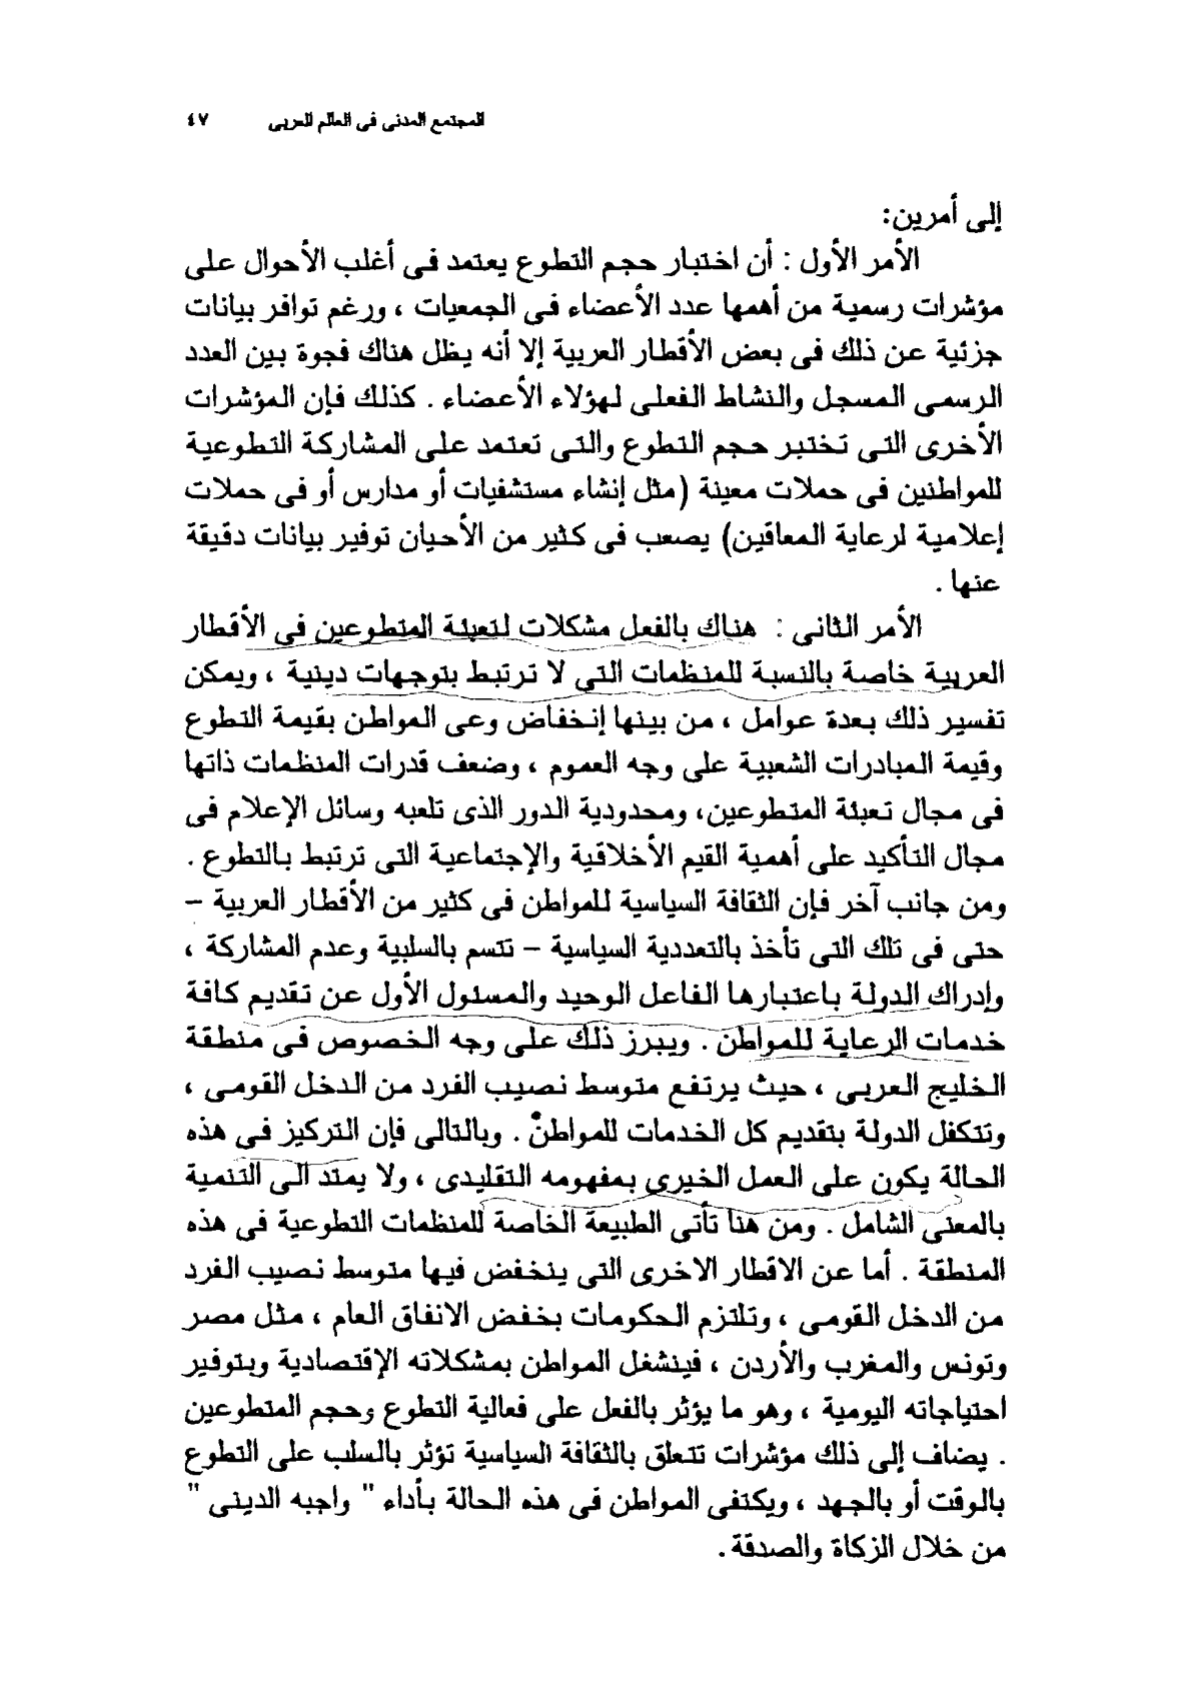 المجتمع المدنى فى العالم العربى ٤٧
إلى أمرين:
الأمر الأول : أن اختبار حجم التطوع يعتمد فى أغلب الأحوال على
مؤشرات رسمية من أهمها عدد الأعضاء فى الجمعيات ، ورغم توافر بيانات
جزئية عن ذلك فى بعض الأقطار العربية إلا أنه يظل هناك فجوة بين العدد
الرسمى المسجل والنشاط الفعلى لهؤلاء الأعضاء . كذلك فإن المؤشرات
الأخرى التى تختبر حجم التطوع والتى تعتمد على المشاركة التطوعية
للمواطنين فى حملات معينة (مثل إنشاء مستشفيات أو مدارس أو فى حملات
إعلامية لرعاية المعاقين) يصعب فى كثير من الأحيان توفير بيانات دقيقة
عنها .
الأمر الثانى : هناك بالفعل مشكلات لتعبئة المتطوعين فى الأقطار
العربية خاصة بالنسبة للمنظمات التى لا ترتبط بتوجهات دينية ، ويمكن
تفسير ذلك بعدة عوامل ، من بينها إنخفاض وعى المواطن بقيمة التطوع
وقيمة المبادرات الشعبية على وجه العموم ، وضعف قدرات المنظمات ذاتها
فى مجال تعبئة المتطوعين، ومحدودية الدور الذى تلعبه وسائل الإعلام فى
مجال التأكيد على أهمية القيم الأخلاقية والإجتماعية التى ترتبط بالتطوع .
ومن جانب آخر فإن الثقافة السياسية للمواطن فى كثير من الأقطار العربية –
حتى فى تلك التى تأخذ بالتعددية السياسية – تتسم بالسلبية وعدم المشاركة ،
وإدراك الدولة باعتبارها الفاعل الوحيد والمسئول الأول عن تقديم كافة
خدمات الرعاية للمواطن . ويبرز ذلك على وجه الخصوص فى منطقة
الخليج العربى ، حيث يرتفع متوسط نصيب الفرد من الدخل القومى ،
وتتكفل الدولة بتقديم كل الخدمات للمواطن . وبالتالى فإن التركيز فى هذه
الحالة يكون على العمل الخيرى بمفهومه التقليدى ، ولا يمتد الى التنمية
بالمعنى الشامل . ومن هنا تأتى الطبيعة الخاصة للمنظمات التطوعية فى هذه
المنطقة . أما عن الاقطار الاخرى التى ينخفض فيها متوسط نصيب الفرد
من الدخل القومى ، وتلتزم الحكومات بخفض الانفاق العام ، مثل مصر
وتونس والمغرب والأردن ، فينشغل المواطن بمشكلاته الإقتصادية وبتوفير
احتياجاته اليومية ، وهو ما يؤثر بالفعل على فعالية التطوع وحجم المتطوعين
. يضاف إلى ذلك مؤشرات تتعلق بالثقافة السياسية تؤثر بالسلب على التطوع
بالوقت أو بالجهد ، ويكتفى المواطن فى هذه الحالة بأداء " واجبه الدينى "
من خلال الزكاة والصدقة .